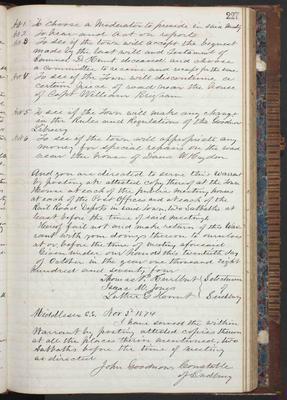 227
Art 1 To choose a Moderator to preside in said meeting
Art 2 To hear and act on reports
Art 3 To see if the town will accept the bequest
made by the last will and Testament of
Samuel D. Hunt deceased and choose
a committee to receive and receipt for the same
Art 4 To see if the Town will discontinue a
certain piece of road near the house
of Capt William Rogers
Art 5 To see if the Town will make any change
in the Rules and Regulations of the Goodnow
Library
Art 6 To see if the town will appropriate any
money for special repairs on the road
near the house of Dana W Hayden
And you are directed to serve this Warrant
by posting up attested copy thereof at the Town
House at each of the public meeting houses
at each of the Post Offices and at each of the
Rail Road Depots in said town, two Sabbaths at
least before the time of said meeting
Hereof fail not and make return of this War-
rant with your doings thereon to ourselves
at or before the time of meeting aforesaid
Given under our hands this twentieth day
of October in the year one thousand eight
hundred and seventy four
Thomas P. Hurlbut Selectmen
Isaac N. Jones of
Luther G. Hunt Sudbury
Middlesex S.S. Nov 3d 1874
I have served the within
Warrant by posting attested copies thereon
at all the places therein mentioned, two
Sabbaths before the time of meeting
as directed
John Goodnow Constable
of Sudbury